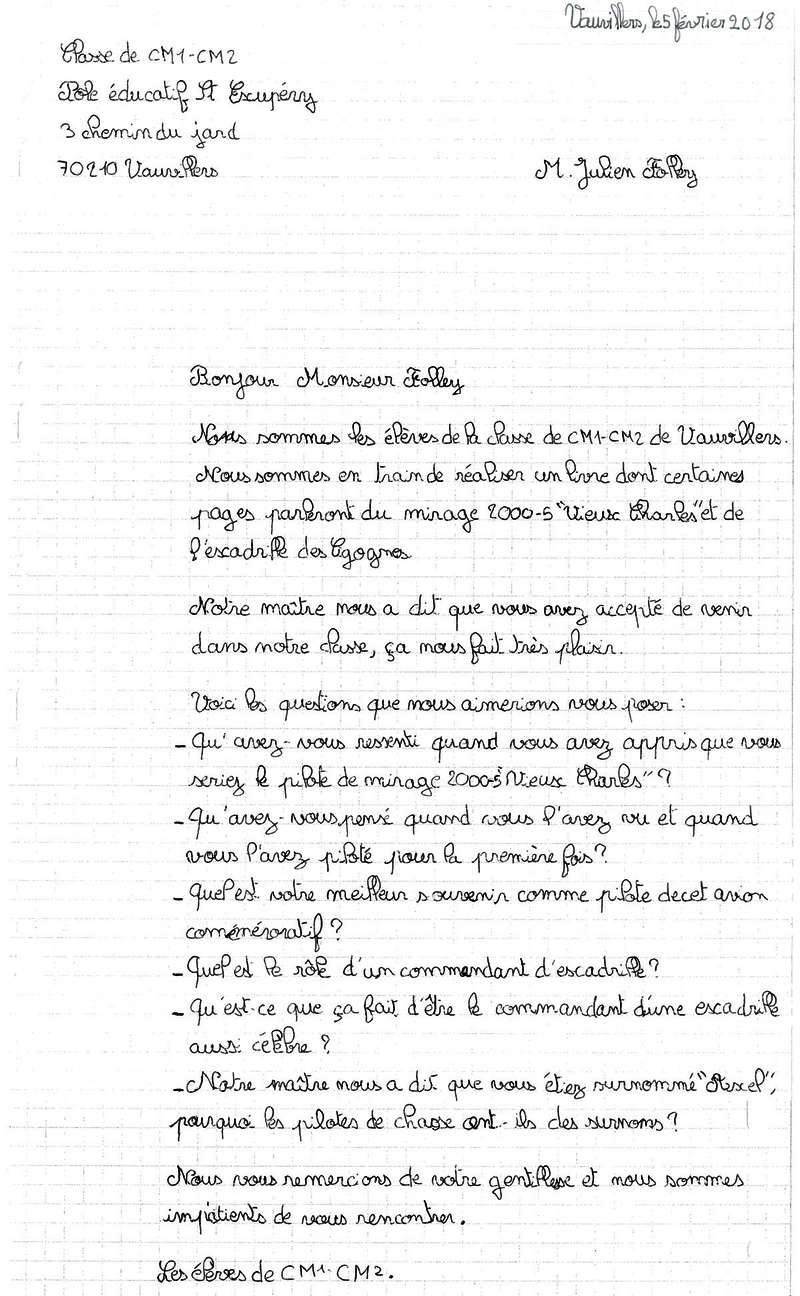 Vauvillers, le 5 février 2018
Classe de CM1-CM2
Pôle éducatif St Exupéry
3 chemin du jard
70210 Vauvillers
M. Julien Folley
Bonjour Monsieur Folley
Nous sommes les élèves de la classe de CM1-CM2 de Vauvillers.
Nous sommes en train de réaliser un livre dont certaines
pages parleront du mirage 2000-5 "Vieux Charles" et de
l'escadrille des Cigognes
Notre maître nous a dit que vous avez accepté de venir
dans notre classe, ça nous fait très plaisir.
Voici les questions que nous aimerions vous poser :
- Qu'avez-vous ressenti quand vous avez appris que vous
seriez le pilote de mirage 2000-5 "Vieux Charles" ?
- Qu'avez-vous pensé quand vous l'avez vu et quand
vous l'avez piloté pour la première fois ?
- Quel est votre meilleur souvenir comme pilote de cet avion
comémératif ?
- Quel est le rôle d'un commandant d'escadrille ?
- Qu'est-ce que ça fait d'être le commandant d'une escadrille
aussi célèbre ?
- Notre maître nous a dit que vous étiez surnommé
pourquoi les pilotes de chasse ont-ils des surnoms ?
Nous vous remercions de votre gentillesse et nous sommes
impatients de vous rencontrer.
Les élèves de CM1-CM2.